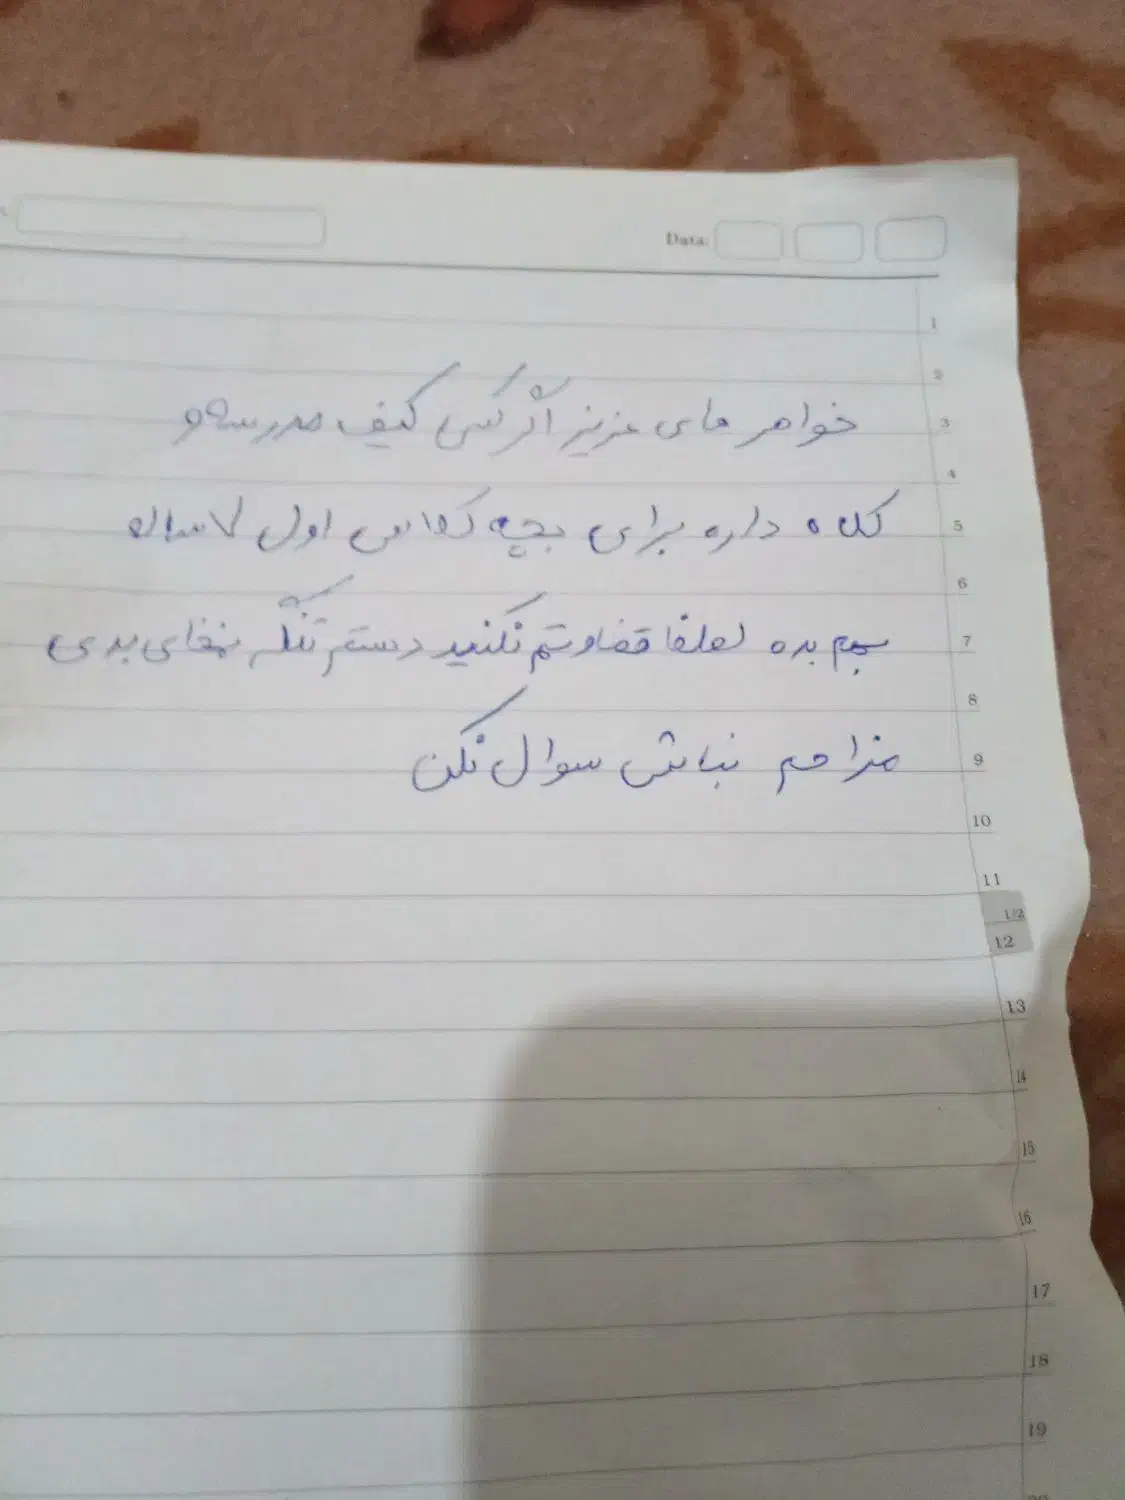 Data:
خواهر های عزیز اگر کسی کیف مدرسه و
کلاه داره برای بچه کلاس اول ۷ ساله
بهم بده لطفا قضاوتم نکنید دستم تنگه نمیخای بدی
مزاحم نباش سوال نکن
1
2
3
4
5
6
7
8
9
10
11
1/2
12
13
14
15
16
17
18
19